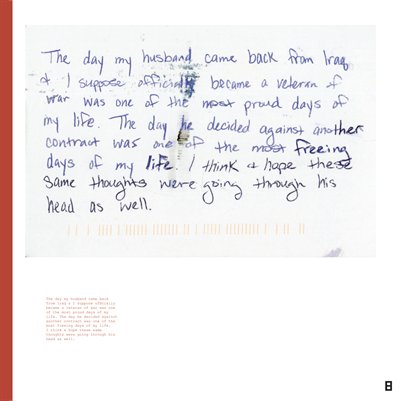 The day my husband came back from Iraq
& I suppose officially became a veteran of
war was one of the most proud days of
my life. The day he decided against another
contract was one of the most freeing
days of my life. I think & hope these
same thoughts were going through his
head as well.
The day my husband came back
from Iraq & I suppose officially
became a veteran of war was one
of the most proud days of my
life. The day he decided against
another contract was one of the
most freeing days of my life.
I think & hope these same
thoughts were going through his
head as well.